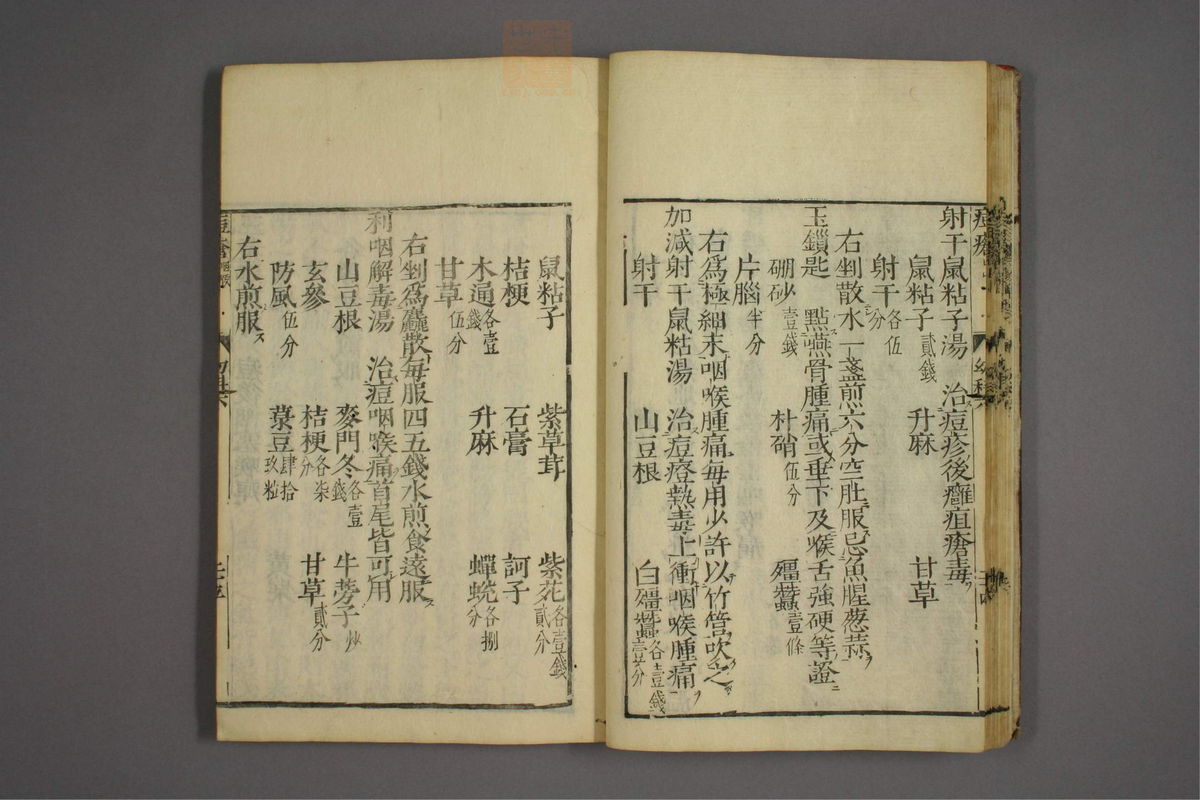 痘瘡
幼科
射干鼠粘子湯　治痘疹後癰疽瘡毒
鼠粘子貳錢　升麻　甘草
射干各伍分
右剉散水一盞煎六分空肚服忌魚腥葱蒜
玉鎖匙　點燕骨腫痛或垂下及喉舌強硬等證
硼砂壹錢　朴硝伍分　殭蠶壹條
片腦半分
右爲極細末咽喉腫痛每用少許以竹管吹之
加減射干鼠粘湯　治痘證熱毒上衝咽喉腫痛
射干　山豆根　白殭蠶各壹錢
鼠粘子　紫草茸　紫菀各壹錢貳分
桔梗　石膏　訶子
木通各壹錢　升麻　蟬蛻各捌分
甘草伍分
右剉爲麤散每服四五錢水煎食遠服
利咽解毒湯　治痘咽喉痛首尾皆可用
山豆根　麥門冬各壹錢　牛蒡子炒
玄參　桔梗各柒分　甘草貳分
防風伍分　菉豆肆拾玖粒
右水煎服